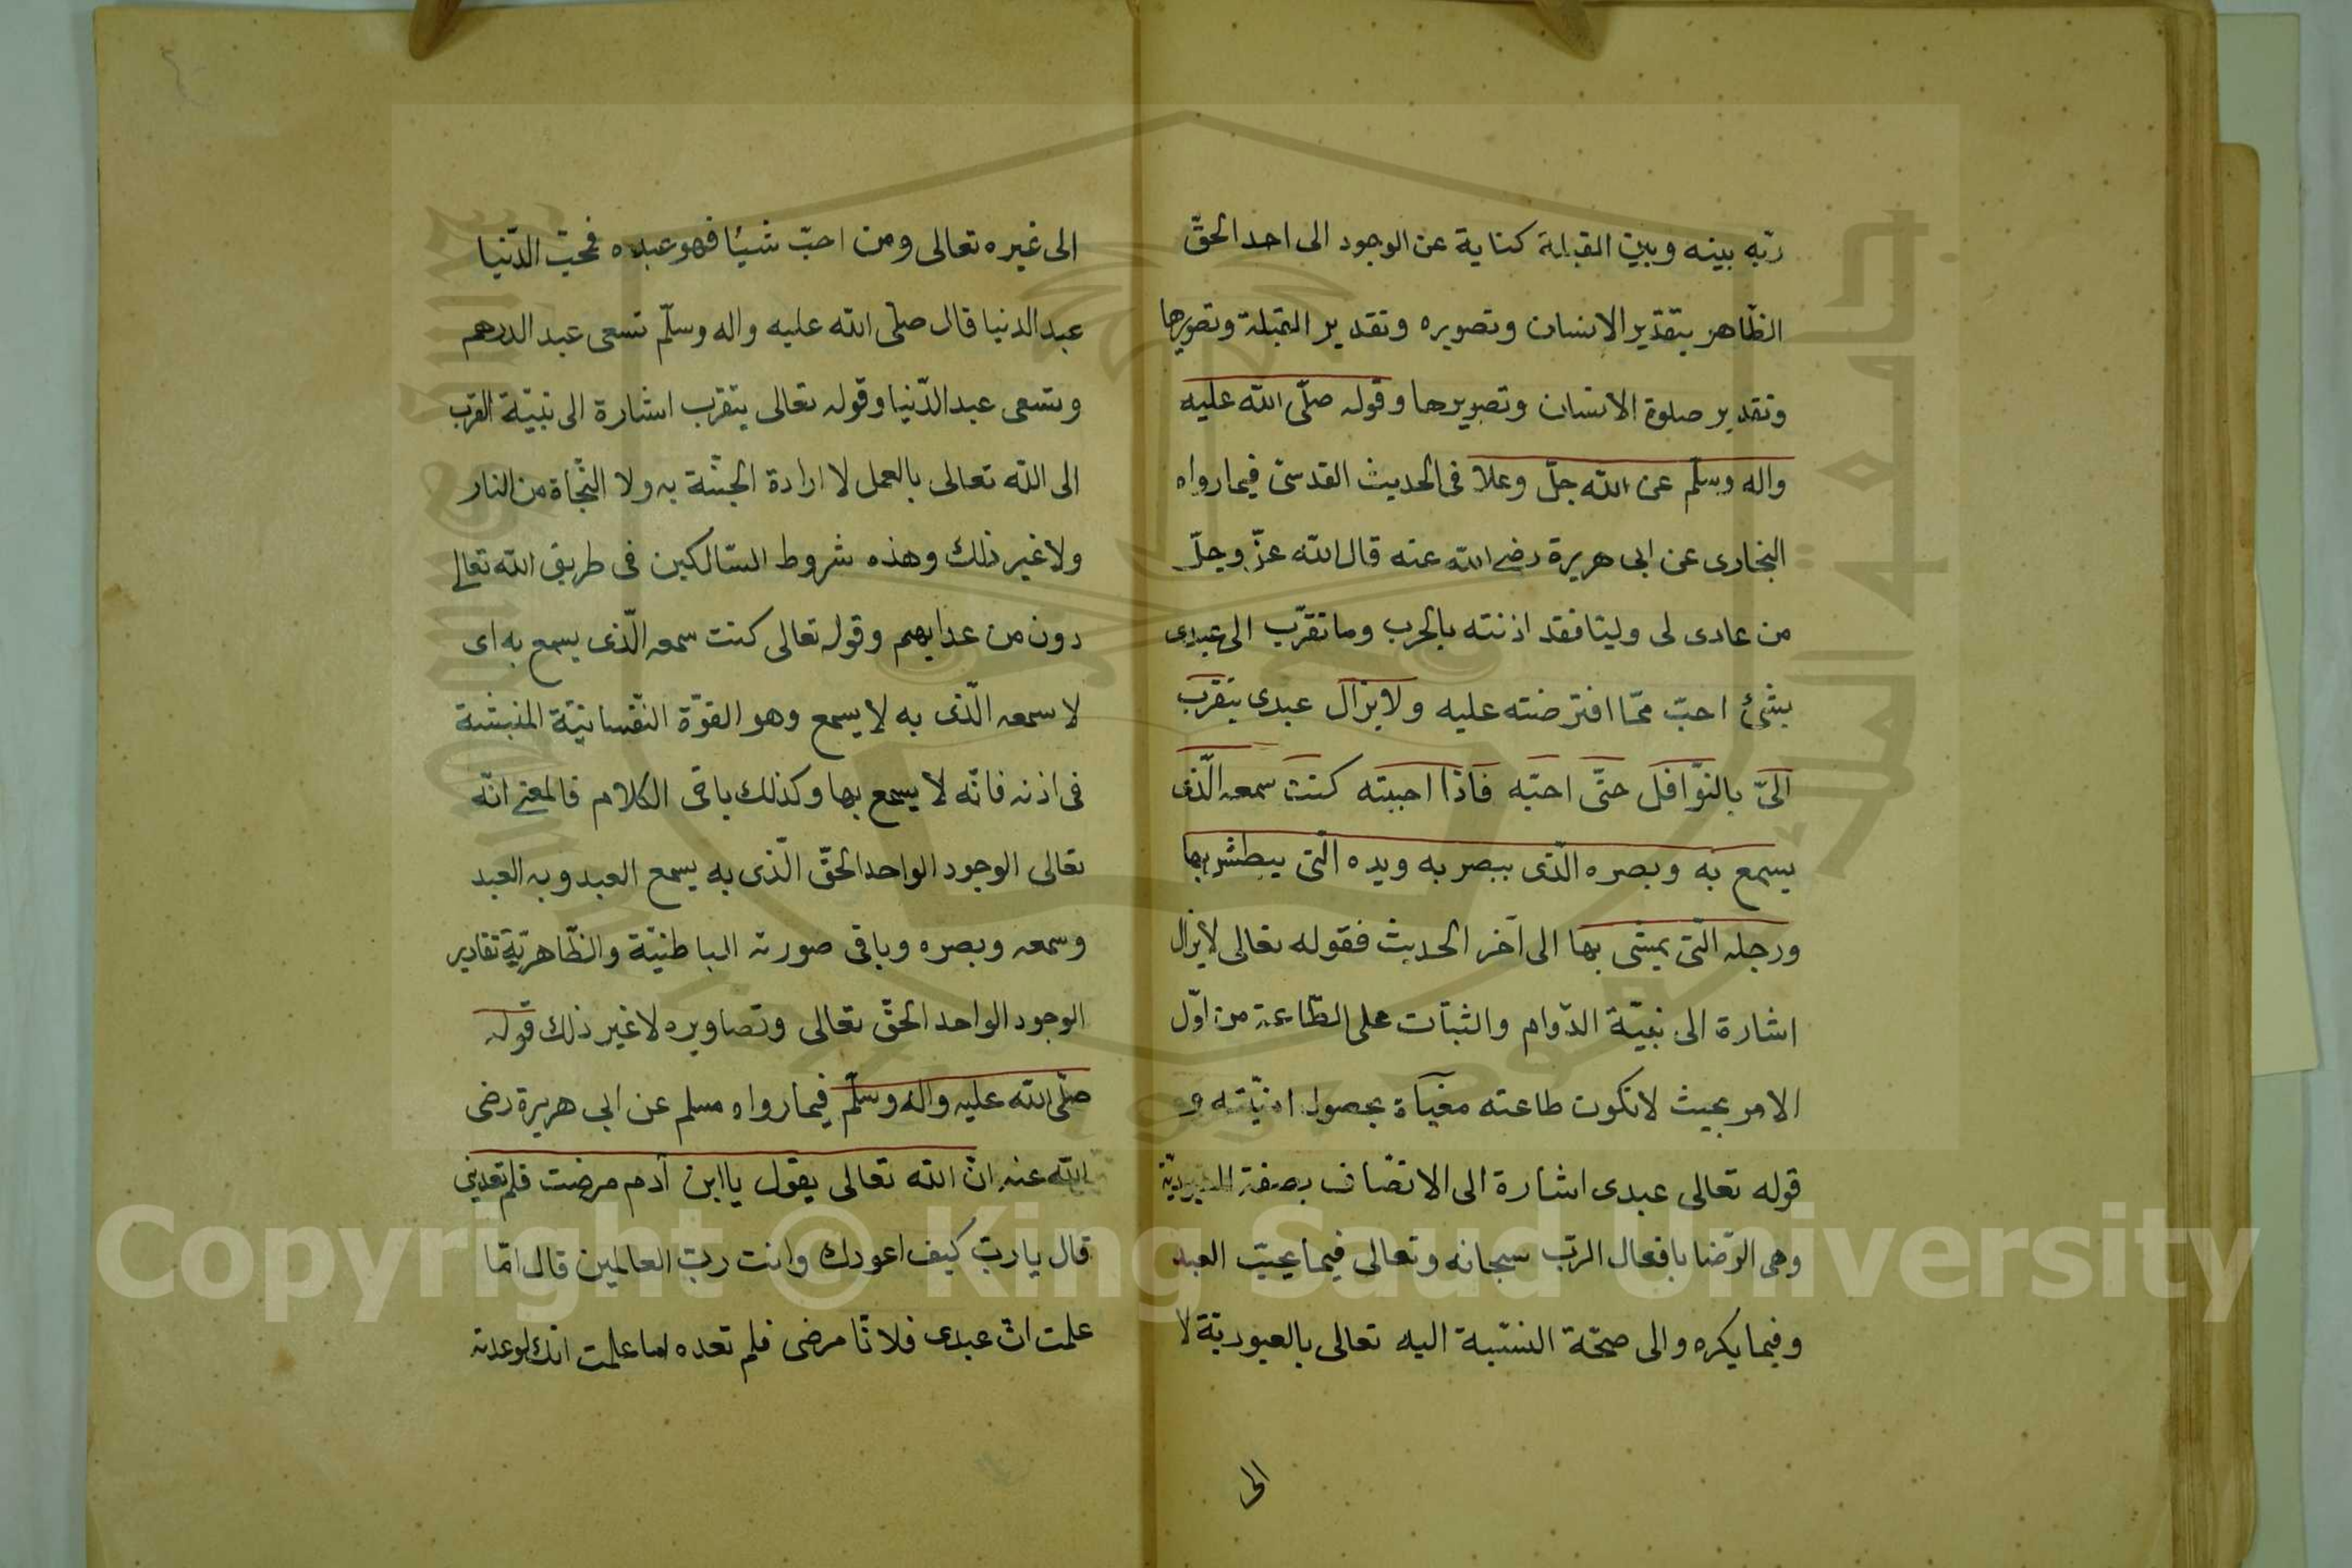 ربّه بينه وبين القبلة كناية عن الوجود الى احد الحقّ
الظّاهر بتقدير الانسان وتصويره وتقدير القبلة وتصويرها
وتقدير صلوة الانسان وتصويرها وقوله صلّى الله عليه
واله وسلّم عن الله جلّ وعلا فى الحديث القدسىّ فيما رواه
البخارى عن ابى هريرة رضى الله عنه قال الله عزّ وجلّ
من عادى لى وليّا فقد اذنته بالحرب وما تقرّب الى عبدى
بشئ احبّ ممّا افترضته عليه ولا يزال عبدى يتقرب
الىّ بالنّوافل حتّى احبّه فاذا احببته كنت سمعه الّذى
يسمع به وبصره الّذى يبصر به ويده الّتى يبطش بها
ورجله الّتى يمشى بها الى آخر الحديث فقوله تعالى لا يزال
اشارة الى نيّة الدّوام والثبات على الطّاعة من اوّل
الامر بحيث لا تكون طاعته مغيّاة بحصول امنيّته و
قوله تعالى عبدى اشارة الى الاتّصاف بصفة العبوديّة
وهى الرّضا بافعال الربّ سبحانه وتعالى فيما يحبّ العبد
وفيما يكره والى صحّة النسّبة اليه تعالى بالعبوديّة لا
الى
الى غيره تعالى ومن احبّ شيئا فهو عبده فمحبّ الدّنيا
عبد الدنيا قال صلّى الله عليه واله وسلّم تسعى عبد الدرهم
وتسعى عبد الدّنيا وقوله تعالى يتقرب اشارة الى نيّة القرب
الى الله تعالى بالعمل لا ارادة الجنّة به ولا النّجاة من النار
ولا غير ذلك وهذه شروط السّالكين فى طريق الله تعالى
دون من عداهم وقوله تعالى كنت سمعه الّذى يسمع به اى
لا سمعه الّذى به لا يسمع وهو القوّة النّفسانيّة المنبثّة
فى اذنه فانّه لا يسمع بها وكذلك باقى الكلام فالمعنى انّه
تعالى الوجود الواحد الحقّ الّذى به يسمع العبد وبه العبد
وسمعه وبصره وباقى صورته الباطنيّة والظّاهريّة تقادير
الوجود الواحد الحقّ تعالى وتصاويره لا غير ذلك قوله
صلّى الله عليه واله وسلّم فيما رواه مسلم عن ابى هريرة رضى
الله عنه انّ الله تعالى يقول يا ابن آدم مرضت فلم تعدنى
قال يا ربّ كيف اعودك وانت ربّ العالمين قال امّا
علمت انّ عبدى فلانا مرضى فلم تعده اما علمت انّك لو عدته
Copyright © King Saud University